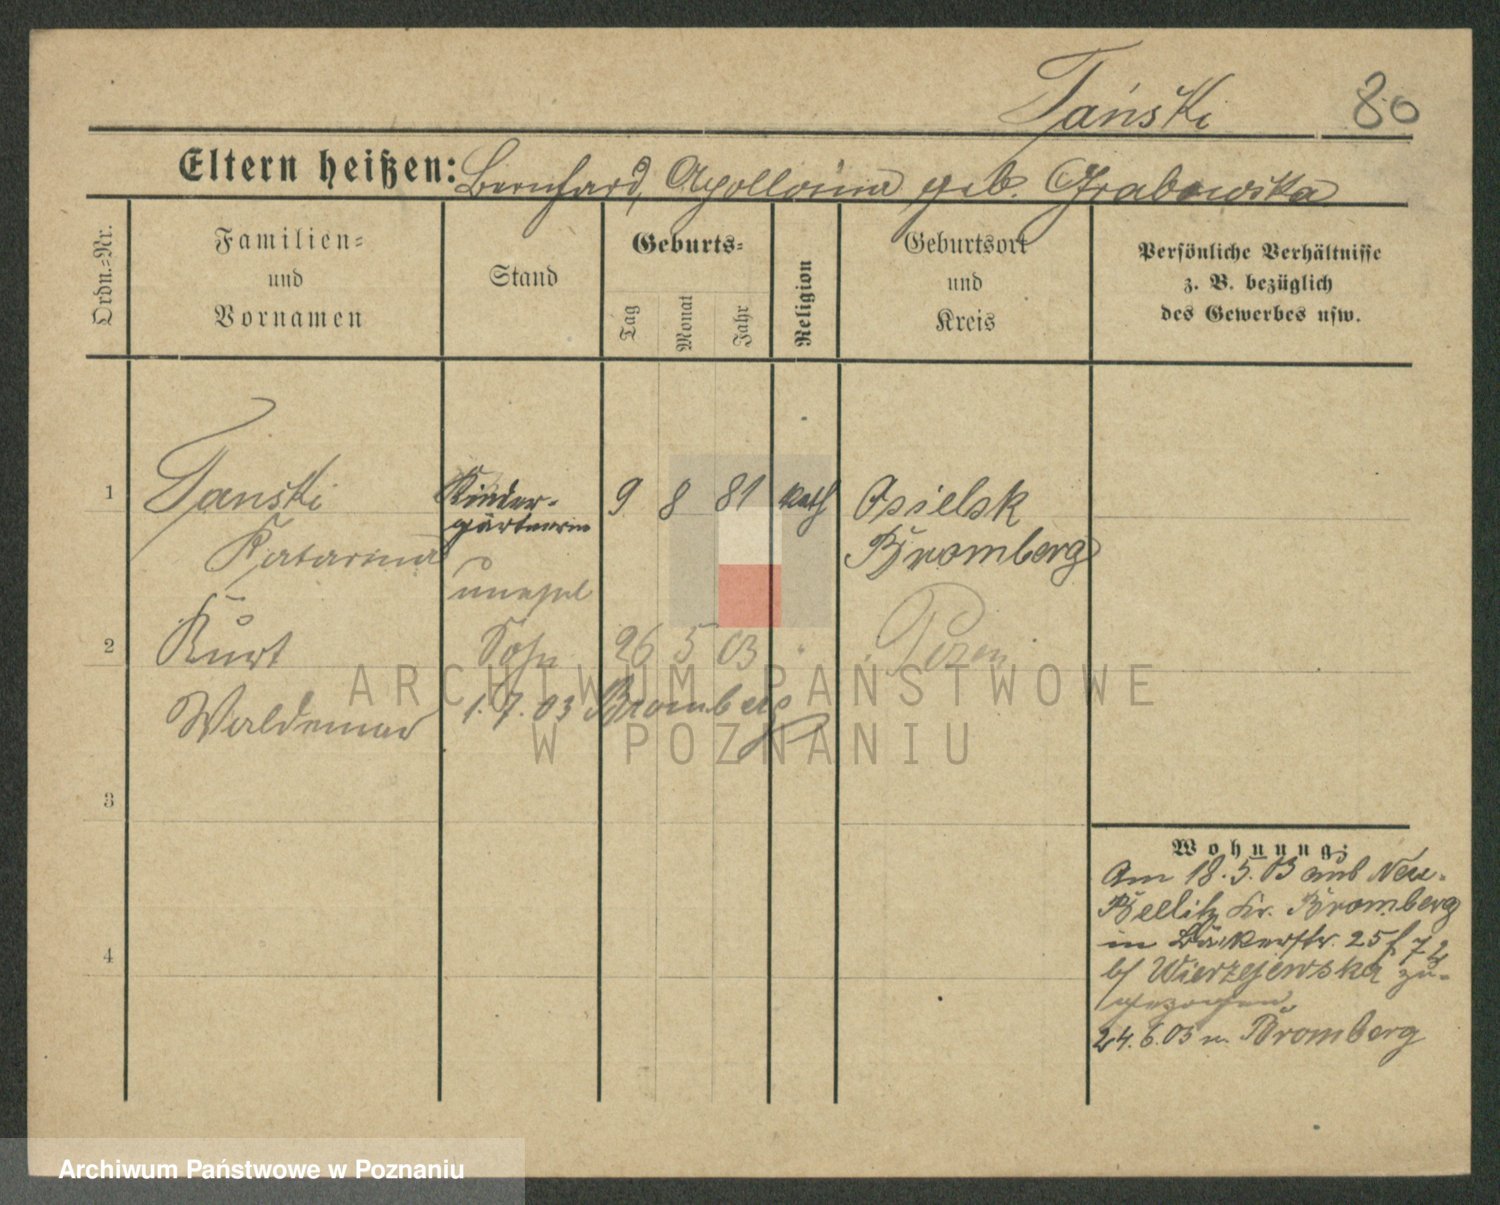 Tański 80
Eltern heißen: Bernhard, Apollonia geb. Grabowska
Ordn.=Nr.
Familien=
und
Vornamen
Stand
Geburts=
Tag
Monat
Jahr
Religion
Geburtsort
und
Kreis
Persönliche Verhältnisse
z. B. bezüglich
des Gewerbes usw.
1 Tanski Kinder- 9 8 81 kath Osielsk
gärtnerin
Katarina Bromberg
unehel
2 Kurt Sohn 26 5 03 Posen
Waldemar 1.7.03 Bromberg
3
4
Wohnung:
Am 18.5.03 aus Neu-
Beelitz Kr. Bromberg
in Bäckerstr. 25
b/ Wierzejewska zu-
gezogen
24.6.03 n. Bromberg
ARCHIWUM PAŃSTWOWE
W POZNANIU
Archiwum Państwowe w Poznaniu